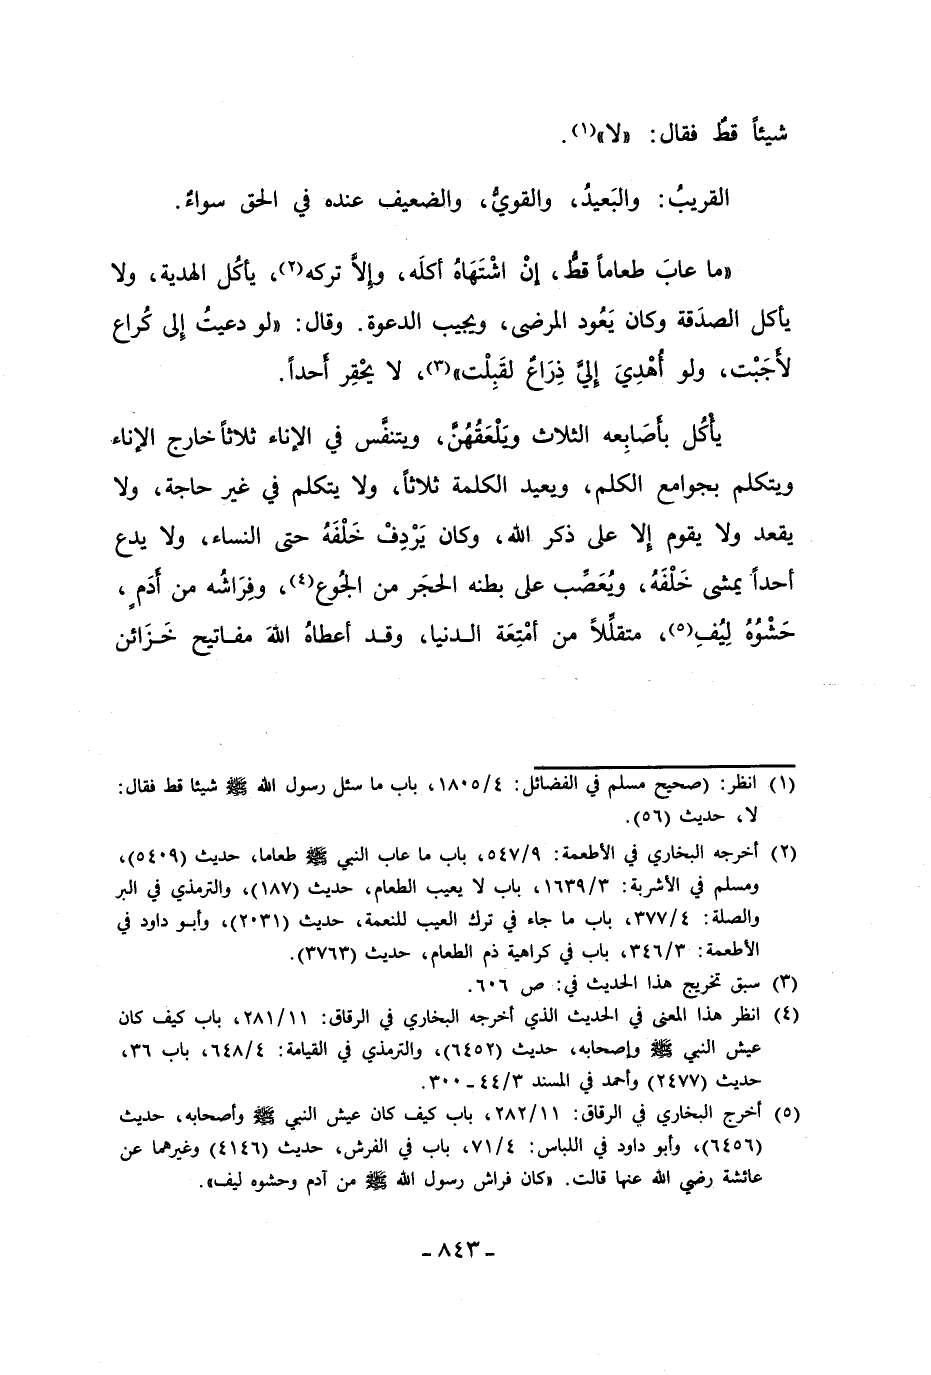 شيئاً قطُّ فقال: «لا»(١).
القريبُ: والبَعيدُ، والقويُّ، والضعيف عنده في الحق سواءٌ.
«ما عابَ طعاماً قطُّ، إنْ اشْتَهَاهُ أكلَه، وإلاَّ تركه(٢)، يأكُل الهدية، ولا
يأكل الصدَقة وكان يَعُود المرضى، ويجيب الدعوة. وقال: «لو دعيتُ إلى كُراع
لأَجَبْت، ولو أُهْدِيَ إليَّ ذِرَاعٌ لقَبِلْت»(٣)، لا يحْقِر أَحداً.
يأْكُل بأَصَابِعه الثلاث ويَلْعَقُهُنَّ، ويتنفَّس في الإناء ثلاثاً خارج الإناء
ويتكلم بجوامع الكلم، ويعيد الكلمة ثلاثاً، ولا يتكلم في غير حاجة، ولا
يقعد ولا يقوم إلا على ذكر الله، وكان يَرْدِفْ خَلْفَهُ حتى النساء، ولا يدع
أحداً يمشى خَلْفَهُ، ويُعَصِّب على بطنه الحجَر من الجُوع(٤)، وفِرَاشُه من أَدَمٍ،
حَشْوُهُ لِيُفِ(٥)، متقلِّلاً من أمْتِعَة الدنيا، وقد أعطاهُ اللهَ مفاتيح خَزَائن
(١) انظر: (صحيح مسلم في الفضائل: ١٨٠٥/٤، باب ما سئل رسول الله ﷺ شيئا قط فقال:
لا، حديث (٥٦).
(٢) أخرجه البخاري في الأطعمة: ٥٤٧/٩، باب ما عاب النبي ﷺ طعاما، حديث (٥٤٠٩)،
ومسلم في الأشربة: ١٦٣٩/٣، باب لا يعيب الطعام، حديث (١٨٧)، والترمذي في البر
والصلة: ٣٧٧/٤، باب ما جاء في ترك العيب للنعمة، حديث (٢٠٣١)، وأبو داود في
الأطعمة: ٣٤٦/٣، باب في كراهية ذم الطعام، حديث (٣٧٦٣).
(٣) سبق تخريج هذا الحديث في: ص ٦٠٦.
(٤) انظر هذا المعنى في الحديث الذي أخرجه البخاري في الرقاق: ٢٨١/١١، باب كيف كان
عيش النبي ﷺ وإصحابه، حديث (٦٤٥٢)، والترمذي في القيامة: ٦٤٨/٤، باب ٣٦،
حديث (٢٤٧٧) وأحمد في المسند ٤٤/٣ ـ ٣٠٠.
(٥) أخرج البخاري في الرقاق: ٢٨٢/١١، باب كيف كان عيش النبي ﷺ وأصحابه، حديث
(٦٤٥٦)، وأبو داود في اللباس: ٧١/٤، باب في الفرش، حديث (٤١٤٦) وغيرهما عن
عائشة رضي الله عنها قالت. «كان فراش رسول الله ﷺ من آدم وحشوه ليف».
ـ ٨٤٣ ـ